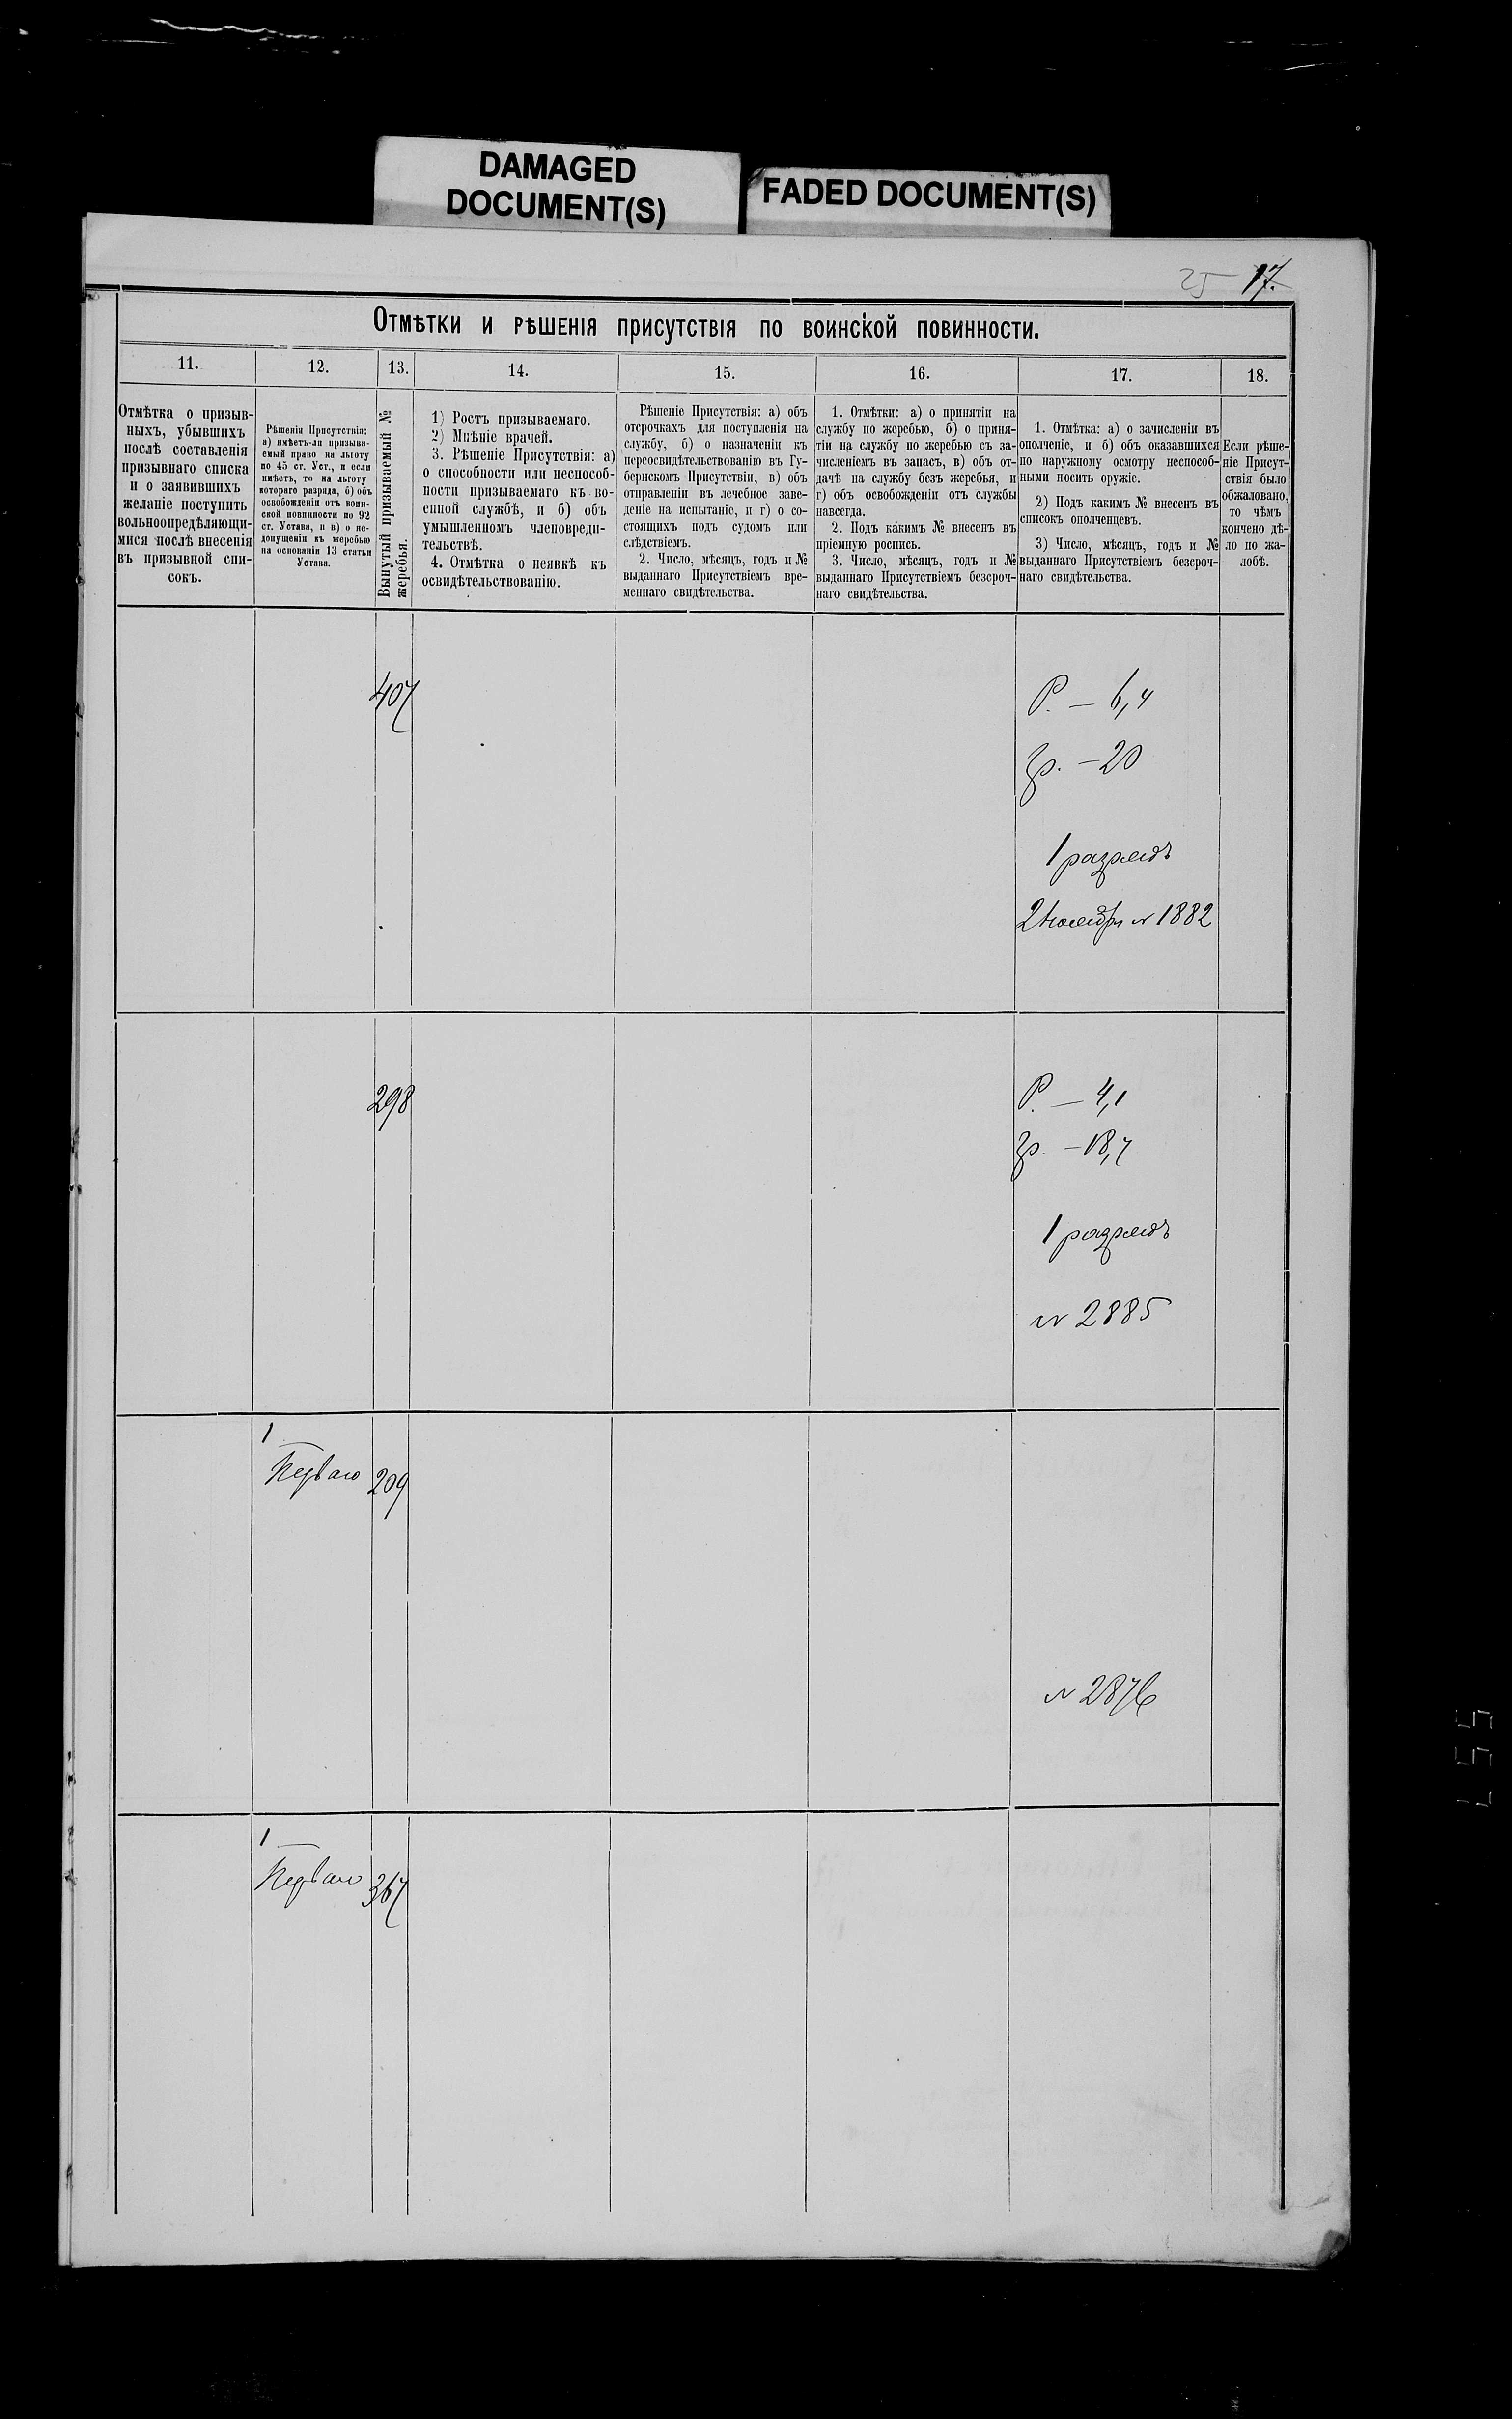 DAMAGED
DOCUMENT(S)
FADED DOCUMENT(S)
25 17.
Отмѣтки и рѣшенія присутствія по воинской повинности.
11. 12. 13. 14. 15. 16. 17. 18.
Отмѣтка о призыв-
ныхъ, убывшихъ
послѣ составленія
призывнаго списка
и о заявившихъ
желаніе поступить
вольноопредѣляющи-
мися послѣ внесенія
въ призывной спи-
сокъ.
Рѣшенія Присутствія:
а) имѣетъ-ли призыва-
емый право на льготу
по 45 ст. Уст., и если
имѣетъ, то на льготу
котораго разряда, б) объ
освобожденіи отъ воин-
ской повинности по 92
ст. Устава, и в) о не-
допущеніи къ жеребью
на основаніи 13 статьи
Устава.
Вынутый призываемый №
жеребья.
1) Ростъ призываемаго.
2) Мнѣніе врачей.
3. Рѣшеніе Присутствія: а)
о способности или неспособ-
ности призываемаго къ во-
енной службѣ, и б) объ
умышленномъ членовреди-
тельствѣ.
4. Отмѣтка о неявкѣ къ
освидѣтельствованію.
Рѣшеніе Присутствія: а) объ
отсрочкахъ для поступленія на
службу, б) о назначеніи къ
переосвидѣтельствованію въ Гу-
бернскомъ Присутствіи, в) объ
отправленіи въ лечебное заве-
деніе на испытаніе, и г) о со-
стоящихъ подъ судомъ или
слѣдствіемъ.
2. Число, мѣсяцъ, годъ и №
выданнаго Присутствіемъ вре-
меннаго свидѣтельства.
1. Отмѣтки: а) о принятіи на
службу по жеребью, б) о приня-
тіи на службу по жеребью съ за-
численіемъ въ запасъ, в) объ от-
дачѣ на службу безъ жеребья, и
г) объ освобожденіи отъ службы
навсегда.
2. Подъ какимъ № внесенъ въ
пріемную роспись.
3. Число, мѣсяцъ, годъ и №
выданнаго Присутствіемъ безсроч-
наго свидѣтельства.
1. Отмѣтка: а) о зачисленіи въ
ополченіе, и б) объ оказавшихся
по наружному осмотру неспособ-
ными носить оружіе.
2) Подъ какимъ № внесенъ въ
списокъ ополченцевъ.
3) Число, мѣсяцъ, годъ и №
выданнаго Присутствіемъ безсроч-
наго свидѣтельства.
Если рѣше-
ніе Присут-
ствія было
обжаловано,
то чѣмъ
кончено дѣ-
ло по жа-
лобѣ.
407
Р. — 6,4
гр. — 20
1 разрядъ
2 ноября № 1882
298
Р. — 4,1
гр. — 18,7
1 разрядъ
№ 2885
1
Перваго 209
№ 2876
1
Перваго 367
557